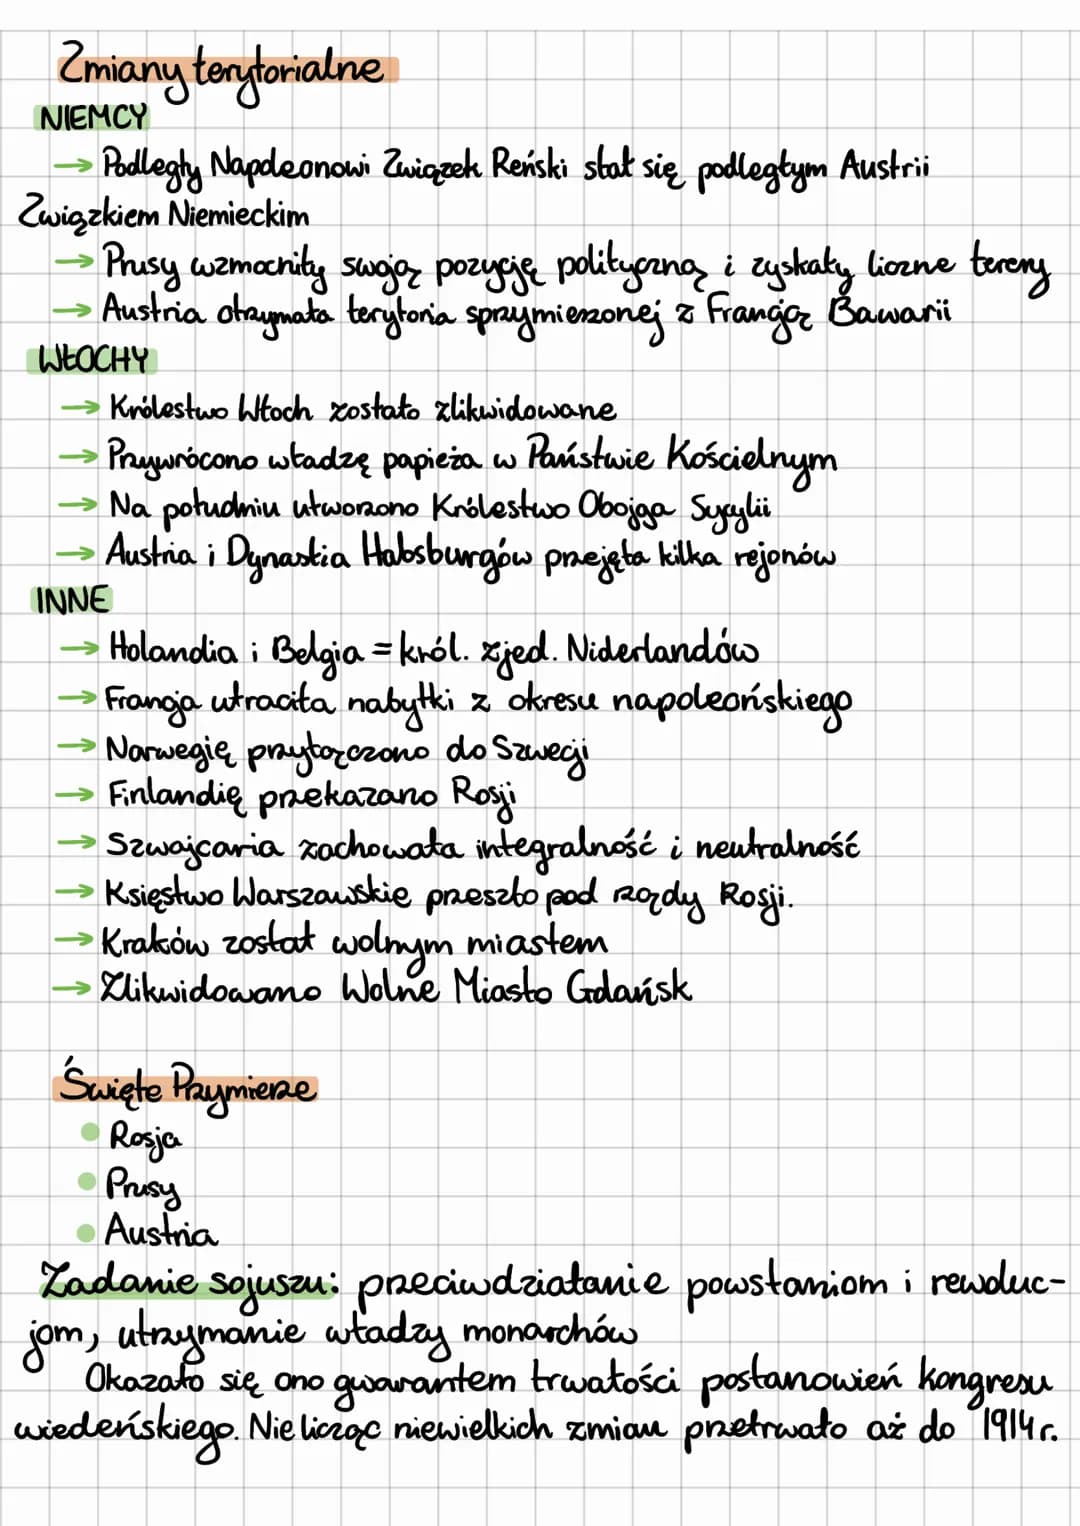 Zmiany terytorialne
NIEMCY
→ Podległy Napoleonowi Związek Reński stał się podległym Austrii
Związkiem Niemieckim
→ Prusy wzmocniły swoją pozycję polityczną i zyskały liczne tereny
→ Austria otrzymała terytoria sprzymierzonej z Francją Bawarii
WŁOCHY
→ Królestwo Włoch zostało zlikwidowane
→ Przywrócono władzę papieża w Państwie Kościelnym
→ Na południu utworzono Królestwo Obojga Sycylii
→ Austria i Dynastia Habsburgów przejęła kilka rejonów
INNE
→ Holandia i Belgia = król. zjed. Niderlandów
→ Francja utraciła nabytki z okresu napoleońskiego
→ Norwegię przyłączono do Szwecji
→ Finlandię przekazano Rosji
→ Szwajcaria zachowała integralność i neutralność
→ Księstwo Warszawskie przeszło pod rządy Rosji.
→ Kraków został wolnym miastem
→ Zlikwidowano Wolne Miasto Gdańsk
Święte Przymierze
• Rosja
• Prusy
• Austria
Zadanie sojuszu: przeciwdziałanie powstaniom i rewoluc-
jom, utrzymanie władzy monarchów
Okazało się ono gwarantem trwałości postanowień kongresu
wiedeńskiego. Nie licząc niewielkich zmian przetrwało aż do 1914 r.